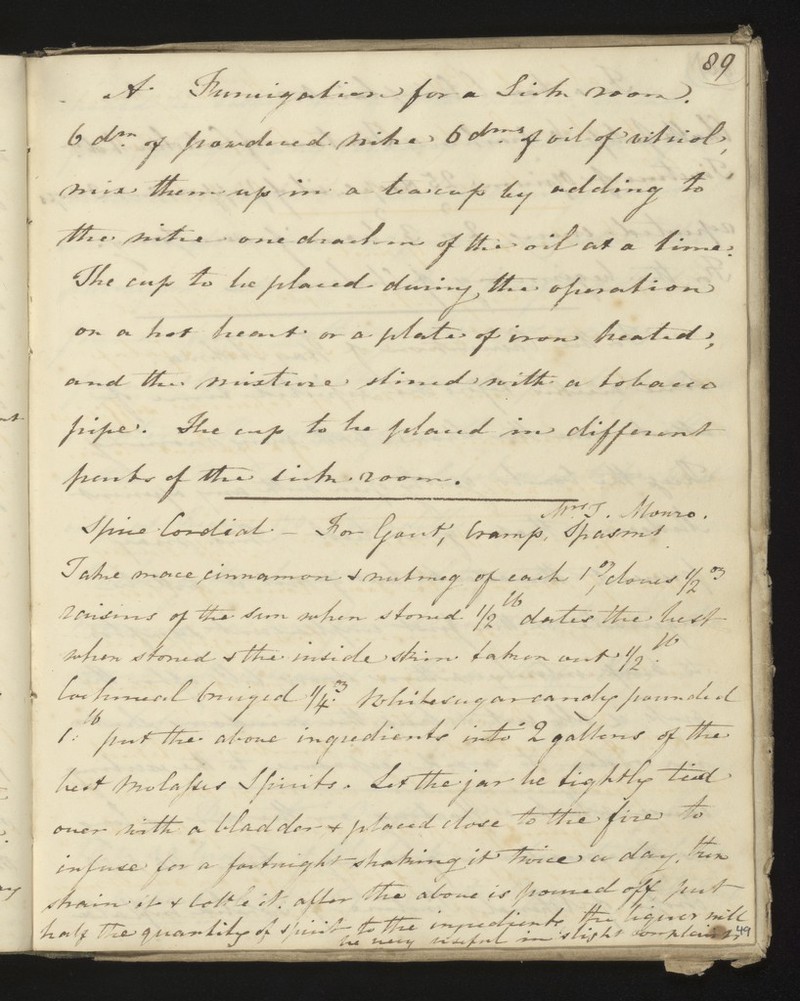 89
A Fumigation for a Sick room.
6 dm. of powdered nitre 6 dms. of oil of vitriol,
mix them up in a teacup by adding to
the nitre one drachm of the oil at a time.
The cup to be placed during the operation
on a hot heart or a plate of iron heated,
and the mixture stirred with a tobacco
pipe. The cup to be placed in different
parts of the sick room.
Mrs J. Monro.
Spice Cordial - For Gout, Cramp, Spasms
Take mace, cinnamon & nutmeg of each 1 oz, cloves 1/2 oz
raisins of the sun when stoned 1/2 lb dates the best
when stoned & the inside skin taken out 1/2 lb.
Cochineal bruized 1/4 oz. White sugar candy pounded
1. lb put the above ingredients into 2 gallons of the
best Molasses Spirits. Let the jar be tightly tied
over with a bladder & placed close to the fire to
infuse for a fortnight shaking it twice a day, then
strain it & bottle it. after the above is poured off put
half the quantity of spirit to the ingredients the liquor will
be very useful in slight complaints
49